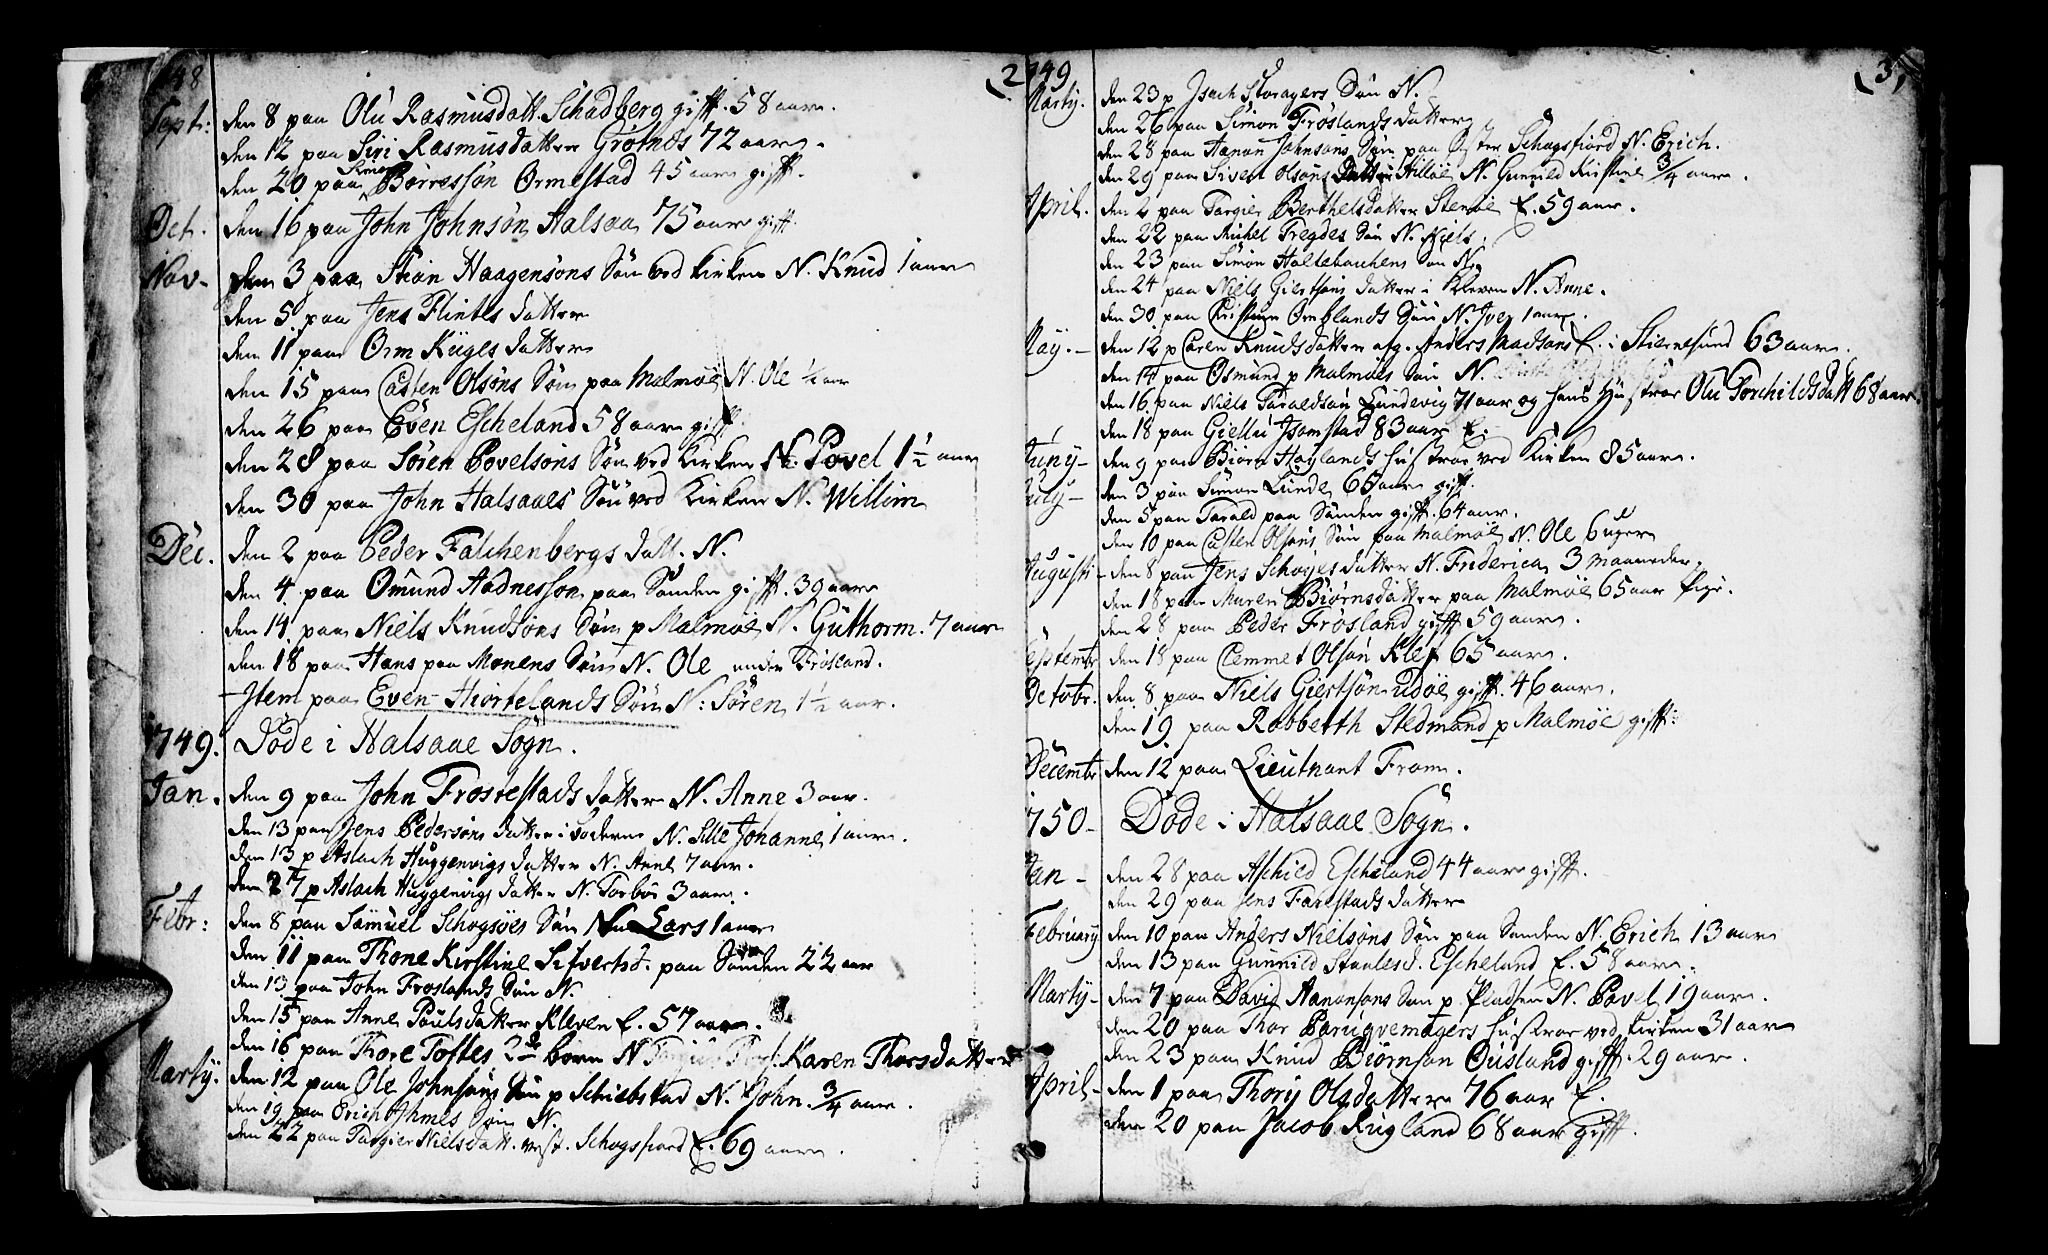 48 2
Sept: den 8 paa Olu Rasmusdatt. Schadberg gift. 58 aar.
den 12 paa Siri Rasmusdatter Grøtnes 72 aar.
den 20 paa Børresøn Ormestad 45 aar gifft.
Oct. den 16 paa John Johnsøn Halsaa 75 aar gifft.
Nov. den 3 paa Stian Haagensøns Søn ved Kirken N. Knud 1 aar
den 5 paa Jens Flintes datter
den 11 paa Orm Kuges datter
den 15 paa Casten Olsøns Søn paa Malmøe N. Ole ½ aar
den 26 paa Even Escheland 58 aar gifft
den 28 paa Søren Povelsøns Søn ved Kirken N. Povel 1½ aar
den 30 paa John Halsaaes Søn ved Kirken N. Willim
Dec. den 2 paa Peder Falchenbergs datt. N.
den 4 paa Omund Aadnessøn paa Sanden gifft. 39 aar
den 14 paa Niels Knudsøns Søn p Malmøe N. Guthorm. 7 aar
den 18 paa Hans paa Monens Søn N. Ole under Frøsland.
Item paa Even Hiortelands Søn N: Søren 1½ aar.
1749. Døde i Halsaae Sogn.
Jan. den 9 paa John Frostestads datter N. Anne 3 aar.
den 13 paa Jens Pedersøns datter i N. Sille Johanne 1 aar.
den 13 p Aslach Huggenvigs datter N. Anne 7 aar.
den 27 p Aslach Huggenvigs datter N. Torbor 3 aar.
Febr: den 8 paa Samuel Schogsøes Søn N. Lars 1 aar
den 11 paa Thone Kirstine Sifvertsd. paa Sanden 22 aar
den 13 paa John Froslands Søn N.
den 15 paa Anne Poulsdatter Kleven E. 57 aar.
den 16 paa Thore Toftes 2de børn N Karen Thorsdatter
Martij. den 12 paa Ole Johnsøns Søn p Schiebstad N. John. ¾ aar.
den 19 paa Erich Ihmes Søn N.
den 22 paa Targier Nielsdatt. vest. Schogsfiord E. 69 aar.
1749 3
Martij. den 23 p Isach Storagers Søn N.
den 26 paa Simon Frøslands datter
den 28 paa Hanan Johnsøns Søn paa Øster Schogsfiord N. Erich.
den 29 paa Sivert Olsøns datter Hilløe N. Gunnild Kirstine ¾ aar.
April. den 2 paa Targier Berthelsdatter Stenøe E. 59 aar.
den 22 paa Michel Tregdes Søn N. Niels.
den 23 paa Simon Holtebachens Søn N.
den 24 paa Niels Giertsøns datter i Kleven N. Anne.
den 30 paa Christen Ornblands Søn N. Iver 1 aar.
May. den 12 p Caren Knudsdatter afg. Anders Madsøns E. i Stiernesund 63 aar.
den 14 paa Osmund p Malmøes Søn N.
den 16 paa Niels Taraldsøn Lundevig 71 aar og hans Hustrue Olu Torchildsdatt 68 aar.
den 18 paa Giellu Isomstad 83 aar E.
Juny den 9 paa Biørn Høylands hustrue ved Kirken 85 aar.
July den 3 paa Simon Lunde 65 aar gift.
den 5 paa Tarald paa Sanden gifft. 64 aar.
den 10 paa Casten Olsøns Søn paa Malmøe N. Ole 6 uger
Augusti den 8 paa Jens Schøyes datter N. Friderica 3 maaneder.
den 18 paa Maren Biørnsdatter paa Malmøe 65 aar Pige.
den 28 paa Peder Frøsland gifft 59 aar.
Septembr den 18 paa Clemmet Olsøn Klef 65 aar.
Octobr. den 8 paa Niels Giertsøn udøe gifft. 46 aar.
den 19 paa Rabberth Stedmand p Malmøe gifft:
Decembr den 12 paa Lieutnant From.
1750 Døde i Halsaae Sogn.
Jan den 28 paa Aschild Escheland 44 aar gifft.
den 29 paa Jens Farestads datter
February den 10 paa Anders Nielsøns Søn paa Sanden N. Erich 13 aar
den 13 paa Gunnild Staalesd. Escheland E. 58 aar.
Martij den 7 paa David Aanonsøns Søn p Pladsen N. Povel 19 aar.
den 20 paa Thor Paruqvemagers hustrue ved Kirken 31 aar
den 23 paa Knud Biørnsøn Ousland gifft. 29 aar.
April den 1 paa Thory Olsdatter 76 aar E.
den 20 paa Jacob Rugland 68 aar gifft.